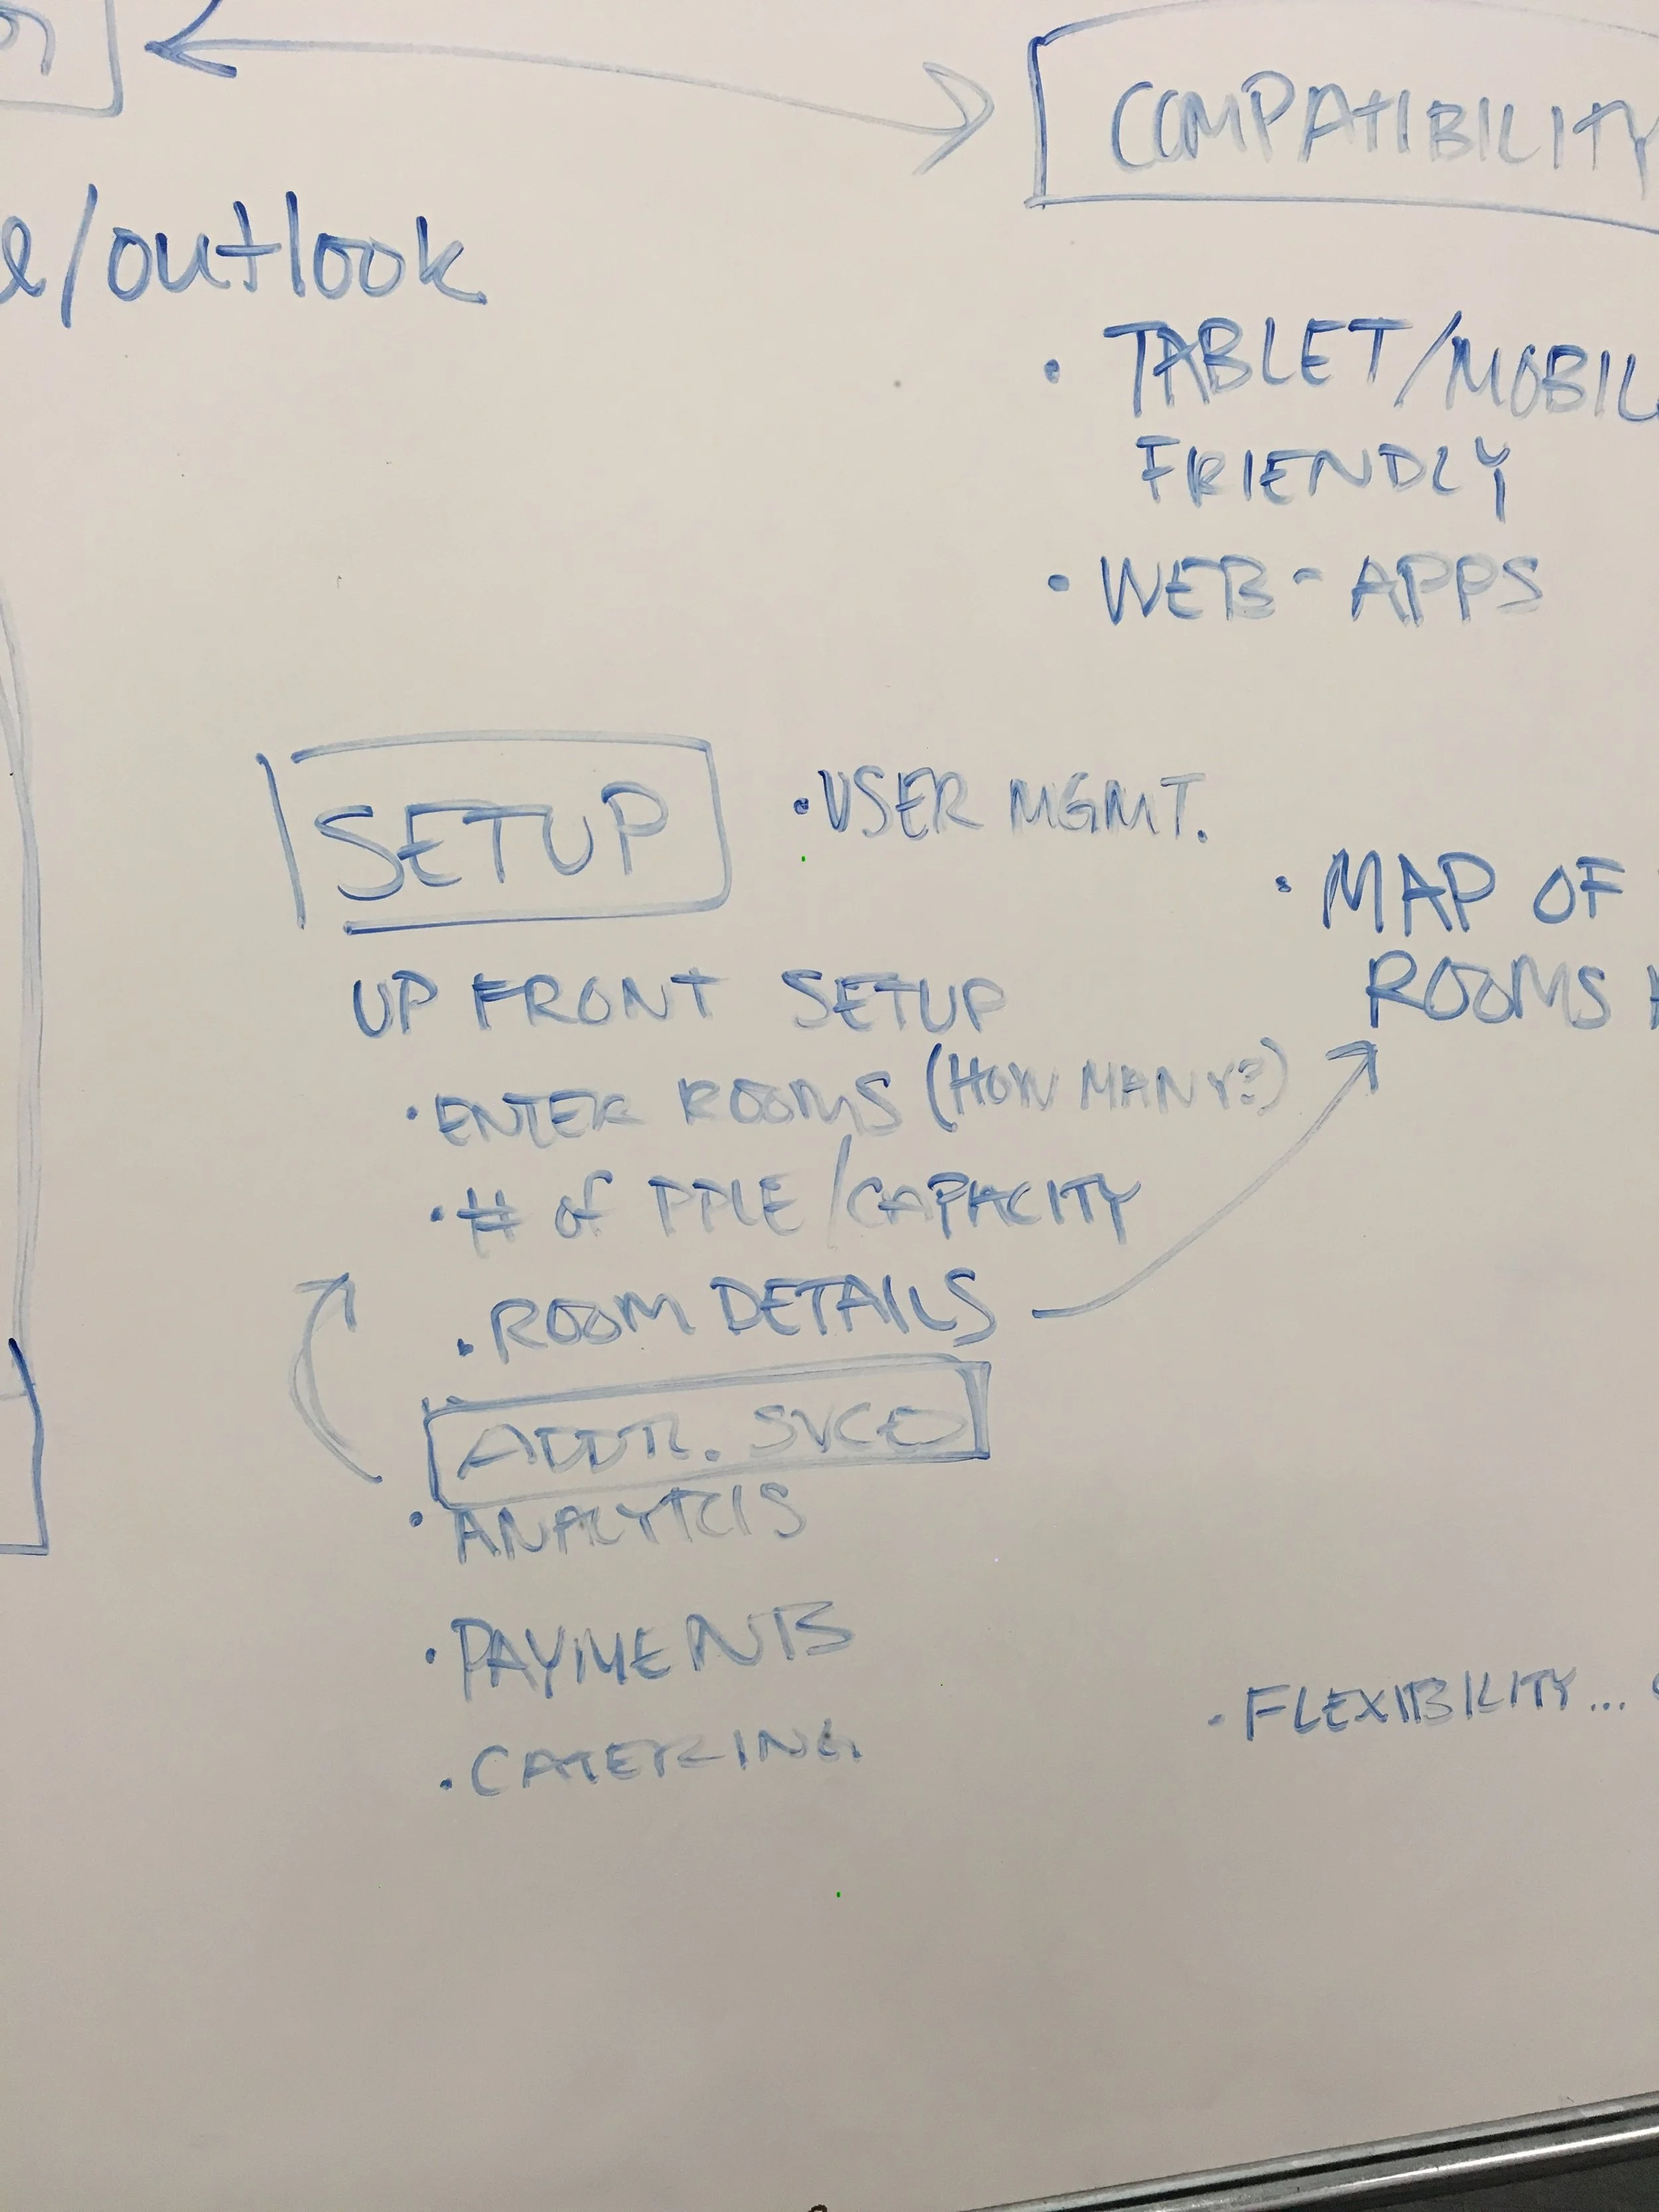 /outlook
COMPATIBILITY
• TABLET/MOBIL
FRIENDLY
• WEB-APPS
SETUP
• USER MGMT.
• MAP OF
ROOMS
UP FRONT SETUP
• ENTER ROOMS (HOW MANY?)
• # of PPLE/CAPACITY
• ROOM DETAILS
ADDTL. SVCES
• ANALYTCIS
• PAYMENTS
• CATERING
• FLEXIBILITY...